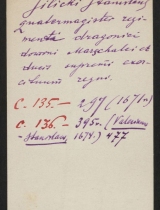 Jilicki Stanislaus
quatermagister regi-
menta dragonici
domini Marschalci et
ducis supremi exer-
cituum regni.
C. 135.— 297 (1671 n)
C. 136.— 395v. (Valerianus
Stanislaus, 1674.) 477